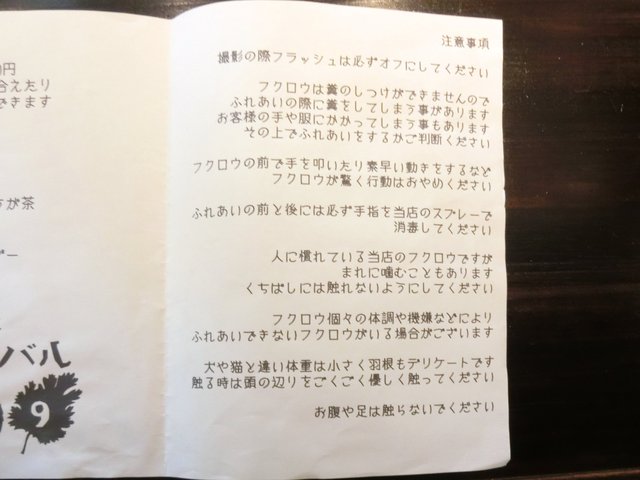 0円
合えたり
できます
が茶
ー
バル
9
注意事項
撮影の際フラッシュは必ずオフにしてください
フクロウは糞のしつけができませんので
ふれあいの際に糞をしてしまう事があります
お客様の手や服にかかってしまう事もあります
その上でふれあいをするかご判断ください
フクロウの前で手を叩いたり素早い動きをするなど
フクロウが驚く行動はおやめください
ふれあいの前と後には必ず手指を当店のスプレーで
消毒してください
人に慣れている当店のフクロウですが
まれに噛むこともあります
くちばしには触れないようにしてください
フクロウ個々の体調や機嫌などにより
ふれあいできないフクロウがいる場合がございます
犬や猫と違い体重は小さく羽根もデリケートです
触る時は頭の辺りをごくごく優しく触ってください
お腹や足は触らないでください